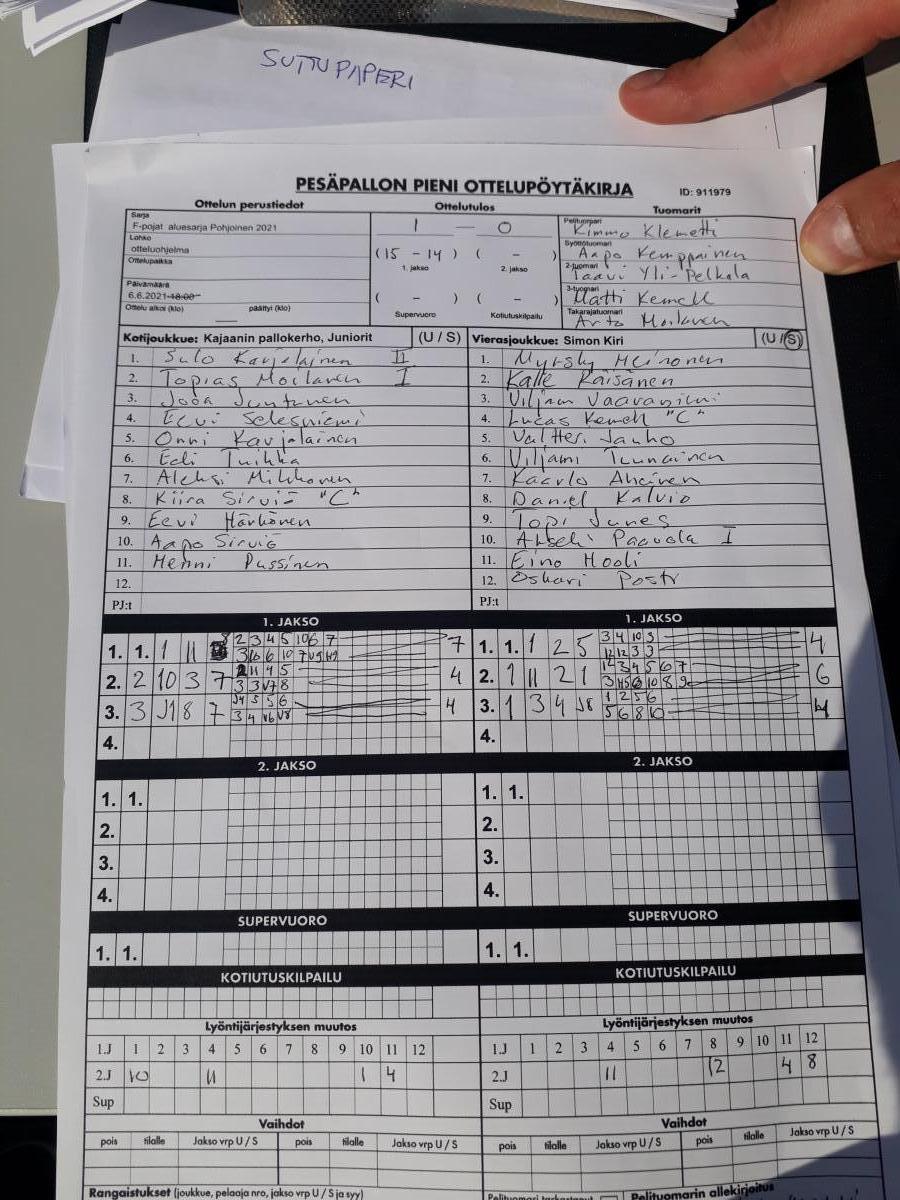 SUTTUPAPERI
PESÄPALLON PIENI OTTELUPÖYTÄKIRJA
ID: 911979
Ottelun perustiedot
Ottelutulos
Tuomarit
Sarja
F-pojat aluesarja Pohjoinen 2021
Lohko
otteluohjelma
Ottelupaikka
Päivämäärä
6.6.2021 18:00
Ottelu alkoi (klo) päättyi (klo)
1 — 0
(15 - 14) ( - )
1. jakso 2. jakso
( - ) ( - )
Supervuoro Kotiutuskilpailu
Pelituomari
Kimmo Klemetti
Syöttötuomari
Aapo Kemppainen
2-tuomari
Taavi Yli-Pelkola
3-tuomari
Matti Kemell
Takarajatuomari
Arto Moilanen
Kotijoukkue: Kajaanin pallokerho, Juniorit (U / S)
1. Sulo Karjalainen II
2. Topias Moilanen I
3. Joda Juntunen
4. Eevi Selesniemi
5. Onni Karjalainen
6. Edi Tuikka
7. Aleksi Mikkonen
8. Kiira Sirviö "C"
9. Eevi Härkönen
10. Aapo Sirviö
11. Henni Pussinen
12.
PJ:t
Vierasjoukkue: Simon Kiri (U / S)
1. Myrsky Heinonen
2. Kalle Käisänen
3. Viljam Vaaraniemi
4. Lucas Kemell "C"
5. Valtteri Jauho
6. Viljami Tuunainen
7. Kaarlo Ahonen
8. Daniel Kalvio
9. Topi Junes
10. Paavola I
11. Eino Hooli
12. Oskari Posti
PJ:t
1. JAKSO
1. 1. 1 11 7
2. 2 10 3 7 4
3. 3 J1 8 7 4
4.
1. JAKSO
1. 1. 1 2 5 4
2. 1 11 2 1 6
3. 1 3 4 J8 4
4.
2. JAKSO
1. 1.
2.
3.
4.
2. JAKSO
1. 1.
2.
3.
4.
SUPERVUORO
1. 1.
SUPERVUORO
1. 1.
KOTIUTUSKILPAILU
KOTIUTUSKILPAILU
Lyöntijärjestyksen muutos
1.J 1 2 3 4 5 6 7 8 9 10 11 12
2.J 10 11 1 4
Sup
Lyöntijärjestyksen muutos
1.J 1 2 3 4 5 6 7 8 9 10 11 12
2.J 11 12 4 8
Sup
Vaihdot
pois tilalle Jakso vrp U / S pois tilalle Jakso vrp U / S
Vaihdot
pois tilalle Jakso vrp U / S pois tilalle Jakso vrp U / S
Rangaistukset (joukkue, pelaaja nro, jakso vrp U / S ja syy)
Pelituomari tarkastanut
Pelituomarin allekirjoitus